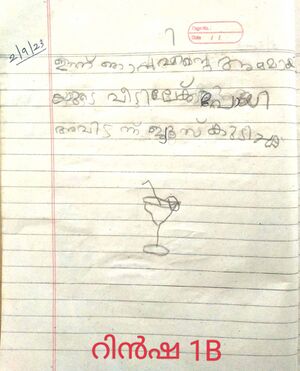 7
Page No.:
Date
2/9/23
ഇന്ന് ഞാൻ എന്റെ
യുടെ വീട്ടിലേക്ക് പോയി
അവിട ന്ന് ജൂസ് കുടിച്ചു
റിൻഷ 1B